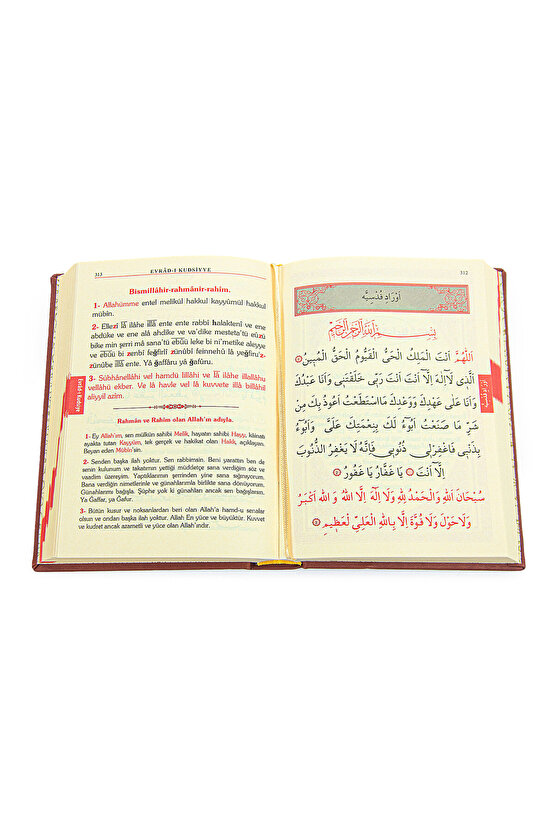 313
EVRÂD-I KUDSİYYE
Bismillâhir-rahmânir-rahîm.
1- Allahümme entel melikül hakkul kayyûmül hakkul
mübîn.
2- Ellezî lâ ilâhe illâ ente ente rabbî halaktenî ve ene
abdüke ve ene alâ ahdike ve va'dike mesteta'tü eûzü
bike min şerri mâ sana'tü ebûü leke bi ni'metike aleyye
ve ebûü bi zenbî feğfirlî zünûbî feinnehû lâ yeğfiru'z-
zünûbe illâ ente. Yâ ğaffâru yâ ğafûru.
3- Sübhânellâhi vel hamdü lillâhi ve lâ ilâhe illallâhu
vellâhü ekber. Ve lâ havle vel lâ kuvvete illâ billâhil
aliyyil azîm.
Rahmân ve Rahîm olan Allah'ın adıyla.
1- Ey Allah'ım, sen mülkün sahibi Melik, hayatın sahibi Hayy, kâinatı
ayakta tutan Kayyûm, tek gerçek ve hakikat olan Hakk, apaçık olan
Beyan eden Mübîn'sin.
2- Senden başka ilah yoktur. Sen rabbimsin. Beni yarattın ben de
senin kulunum ve takatimin yettiği müddetçe sana verdiğim söz ve
vaadim üzereyim. Yaptıklarımın şerrinden yine sana sığınıyorum.
Bana verdiğin nimetlerinle ve günahlarımla birlikte sana dönüyorum,
Günahlarımı bağışla. Şüphe yok ki günahları ancak sen bağışlarsın.
Ya Gaffar, ya Gafur.
3- Bütün kusur ve noksanlardan beri olan Allah'a hamd-u senalar
olsun ve ondan başka ilah yoktur. Allah En yüce ve büyüktür. Kuvvet
ve kudret ancak azametli ve yüce olan Allah'ındır.
Evrâd-ı Kudsiyye
312
اَوْرَادِ قُدْسِيَّه
بِسْمِ اللّٰهِ الرَّحْمٰنِ الرَّحِيمِ
اَللّٰهُمَّ اَنْتَ الْمَلِكُ الْحَىُّ الْقَيُّومُ الْحَقُّ الْمُبِينُ ۝
اَلَّذِى لَٓا اِلٰهَ اِلَّٓا اَنْتَ اَنْتَ رَبِّى خَلَقْتَنِى وَاَنَا عَبْدُكَ
وَاَنَا عَلٰى عَهْدِكَ وَوَعْدِكَ مَا اسْتَطَعْتُ اَعُوذُ بِكَ مِنْ
شَرِّ مَا صَنَعْتُ اَبُوٓءُ لَكَ بِنِعْمَتِكَ عَلَىَّ وَاَبُوٓءُ
بِذَنْبِى فَاغْفِرْلِى ذُنُوبِى فَاِنَّهُ لَا يَغْفِرُ الذُّنُوبَ
اِلَّٓا اَنْتَ ۝ يَا غَفَّارُ يَا غَفُورُ ۝
سُبْحَانَ اللّٰهِ وَالْحَمْدُ لِلّٰهِ وَلَٓا اِلٰهَ اِلَّا اللّٰهُ وَاللّٰهُ اَكْبَرُ
وَلَا حَوْلَ وَلَا قُوَّةَ اِلَّا بِاللّٰهِ الْعَلِىِّ الْعَظِيمِ ۝
اَوْرَادِ قُدْسِيَّه